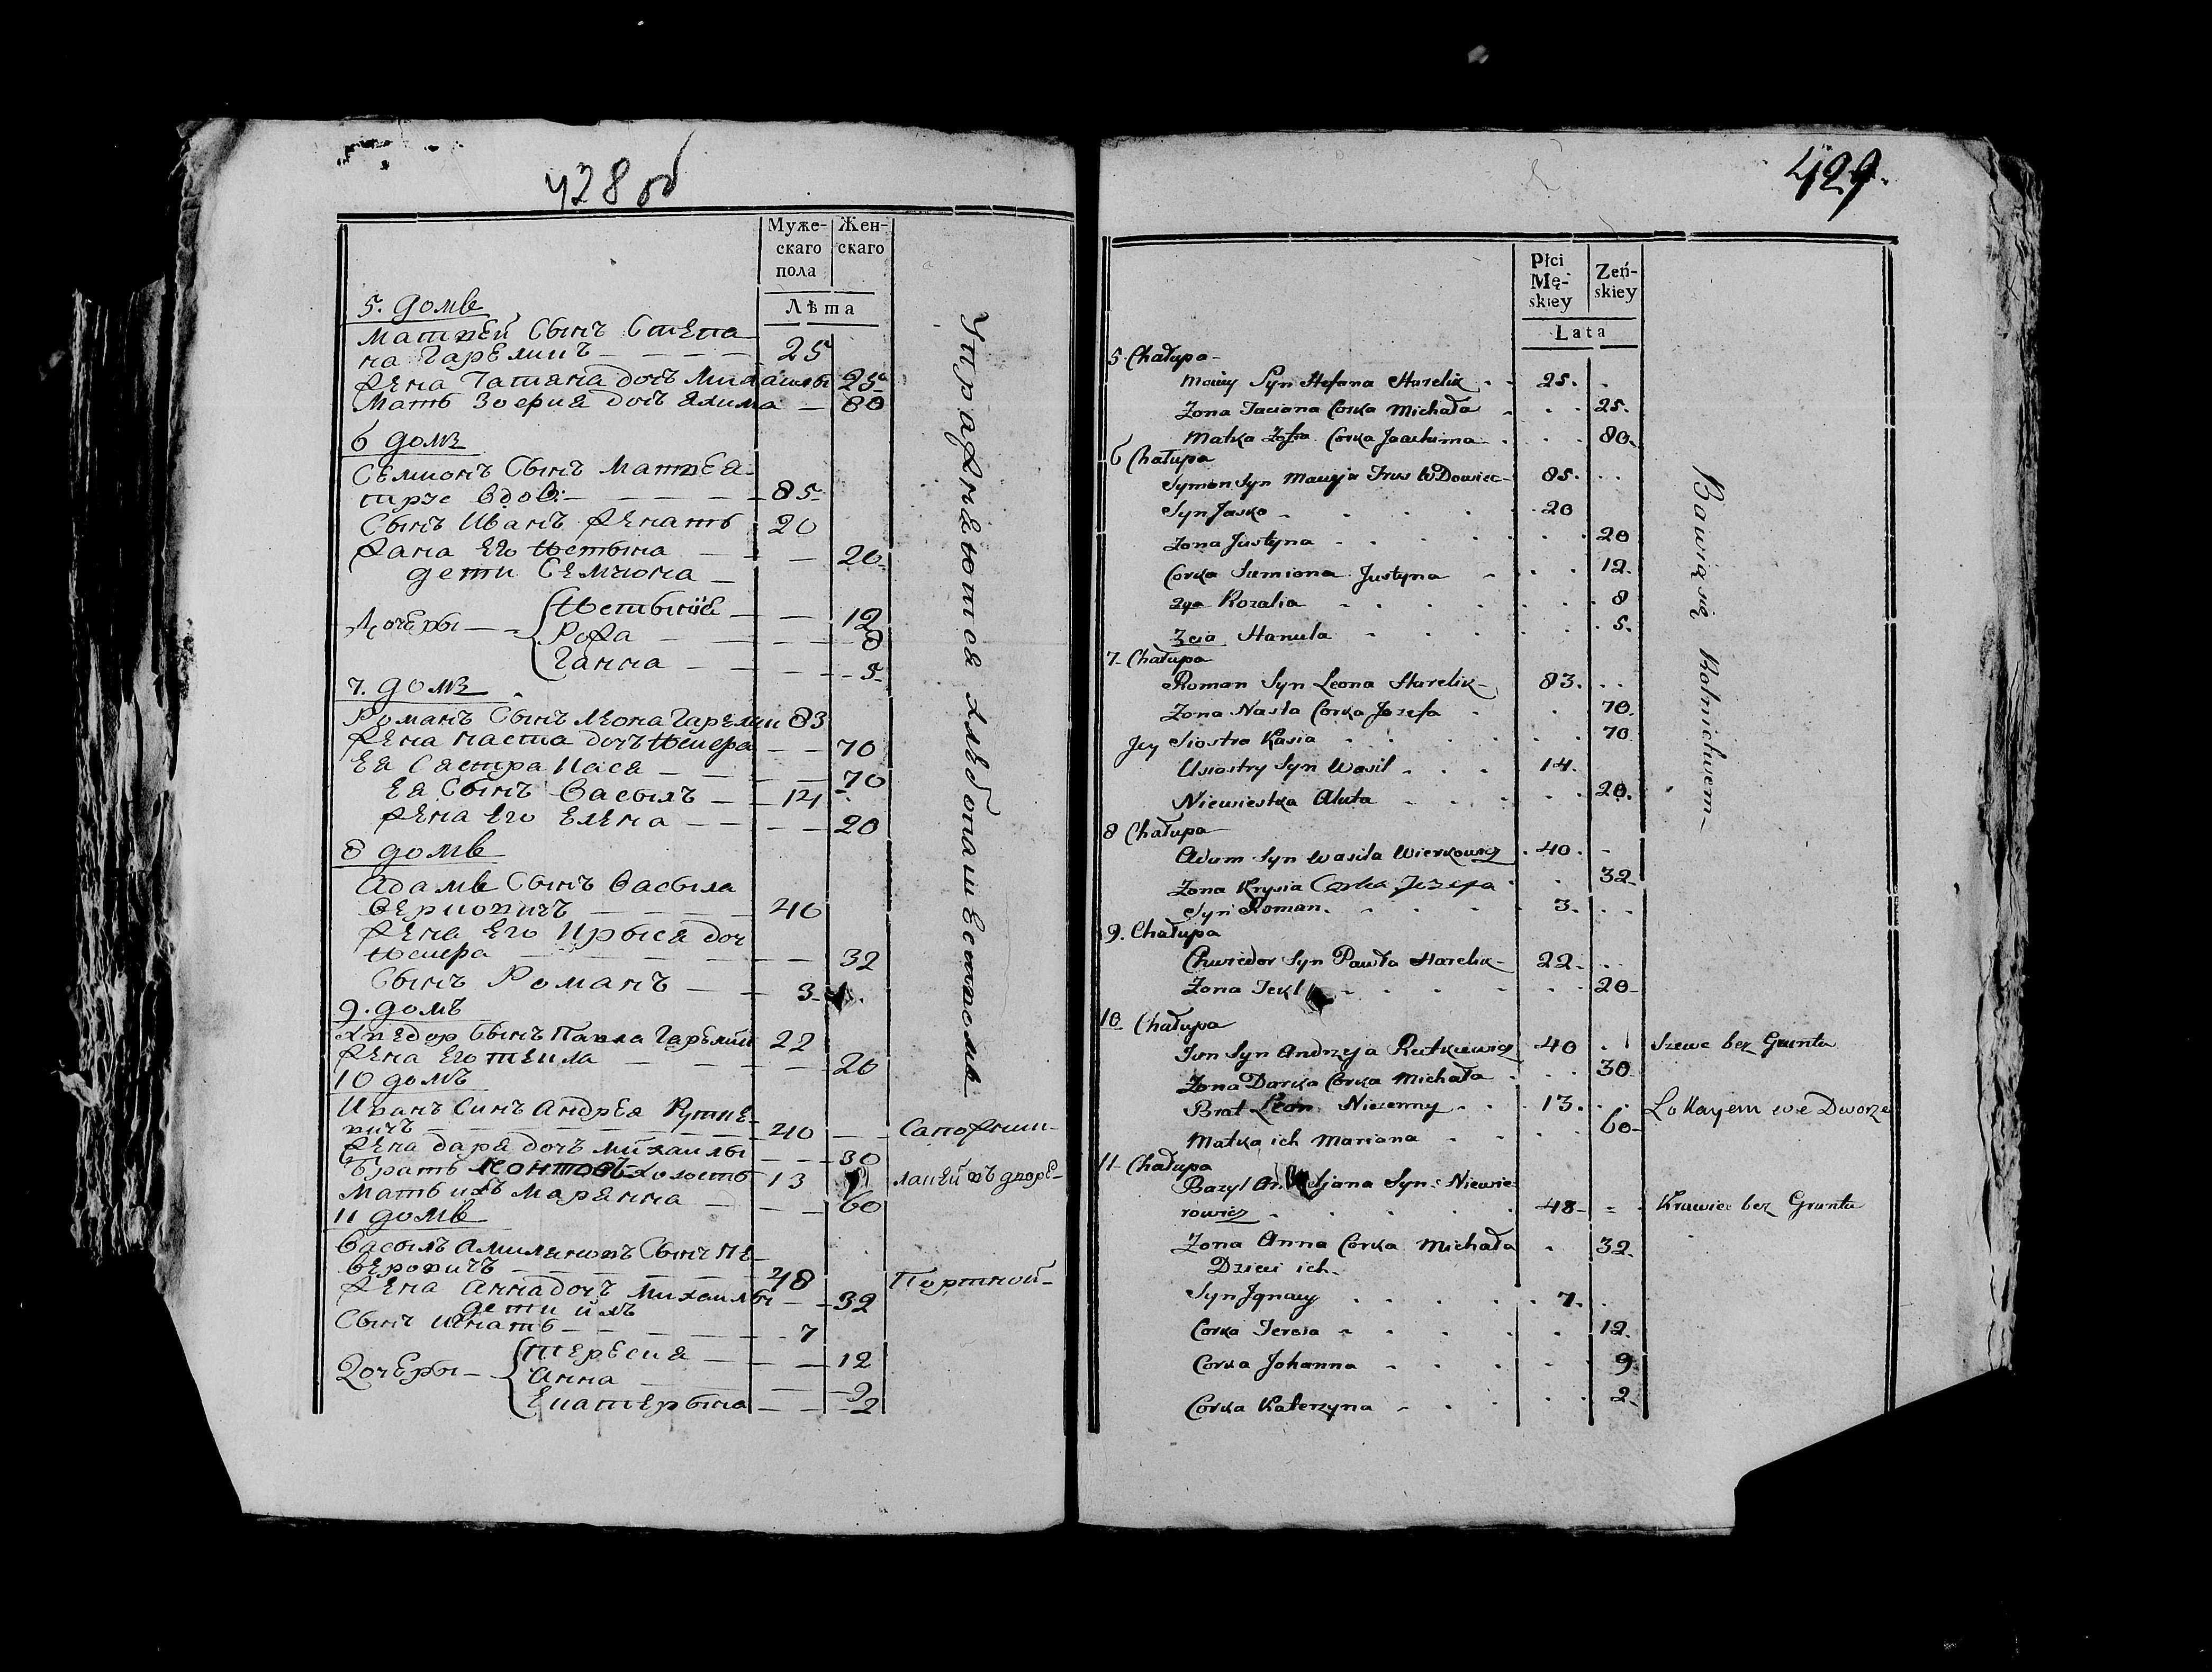 428 об
Муже-
скаго
пола
Жен-
скаго
Лѣта
5. домъ
Матвей Сынъ Степа-
на Гареликъ 25
Жена Татяна дочъ Михаилы 25
Мать Зоерия дочъ Яхима 80
6 домъ
Семионъ Сынъ Матвея
вдов: 85
Сынъ Иванъ Женатъ 20
Жана Его Юстына 20
дети Семиона
Дочеры
Юстыня 12
Рожа 8
Ганна 5
7. домъ
Романъ Сынъ Леона Гарелик 83
Жена Наста дочъ Юзефа 70
Ея Сястра Кася 70
Ея Сынъ Васылъ 14
Жена Его Елена 20
8 домъ
Адамъ Сынъ Васыла
Верковичъ 40
Жена Его Крыся доч
Юзефа 32
Сынъ Романъ 3
9. домъ
Хведор Сынъ Павла Гарелик 22
Жена Его Текла 20
10 домъ
Иванъ Синъ Андрея Рутке-
вичъ 40 Сапожник
Жена Даря дочъ Михаилы 30
Братъ Холостъ 13 лакей въ дворе
Мать ихъ Марянна 60
11 домъ
Васылъ Сынъ Не-
веровичъ 48 Портной
Жена Анна дочъ Михаилы 32
дети ихъ
Сынъ Игнатъ 7
Дочеры
Тересия 12
Анна 9
Екатерына 2
Упражняются хлебопашествомъ
429.
Płci
Mę-
skiey
Zeń-
skiey
Lata
5. Chałupa
Maciey Syn Stefana Harelik 25.
Zona Taciana Corka Michała 25.
Matka Zofia Corka Joachima 80.
6 Chałupa
Symon Syn Macieja Wdowiec 85.
Syn Jasko 20
Zona Justyna 20
Corka Simiona Justyna 12.
2ga Rozalia 8
3cia Hanula 5.
7. Chałupa
Roman Syn Leona Harelik 83.
Zona Nasta Corka Jozefa 70.
Jey Siostra Kasia 70
U siostry Syn Wasil 14.
Niewiestka Aluta 20.
8 Chałupa
Adam Syn Wasila Wierkowicz 40.
Zona Krysia Corka Jozefa 32
Syn Roman 3.
9. Chałupa
Chwiedor Syn Pawła Harelik 22.
Zona Tekl 20
10 Chałupa
Iwn Syn Andrzeja Rutkiewicz 40 Szewc bez Gruntu
Zona Darka Corka Michała 30
Brat Leon Niezenny 13. Lokayem we Dworze
Matka ich Mariana 60
11 Chałupa
Bazyl Syn Niewie-
rowicz 48 Krawiec bez Gruntu
Zona Anna Corka Michała 32.
Dzieci ich
Syn Jgnacy 7.
Corka Teresa 12.
Corka Johanna 9.
Corka Katerzyna 2.
Bawią się Rolnictwem